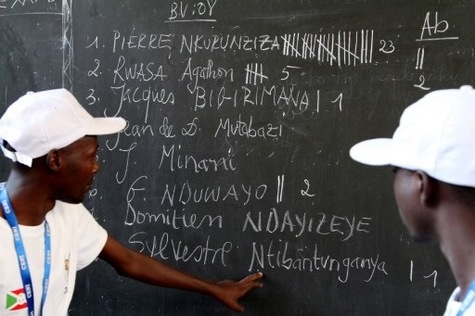 BV:04
Ab
1. PIERRE NKURUNZIZA 23
2. RWASA Agathon 5
2
3. Jacques BIGIRIMANA 1
Jean de D. Mutabazi
J. Minani
6. F. NDUWAYO 2
Domitien NDAYIZEYE
Sylvestre Ntibantunganya 1